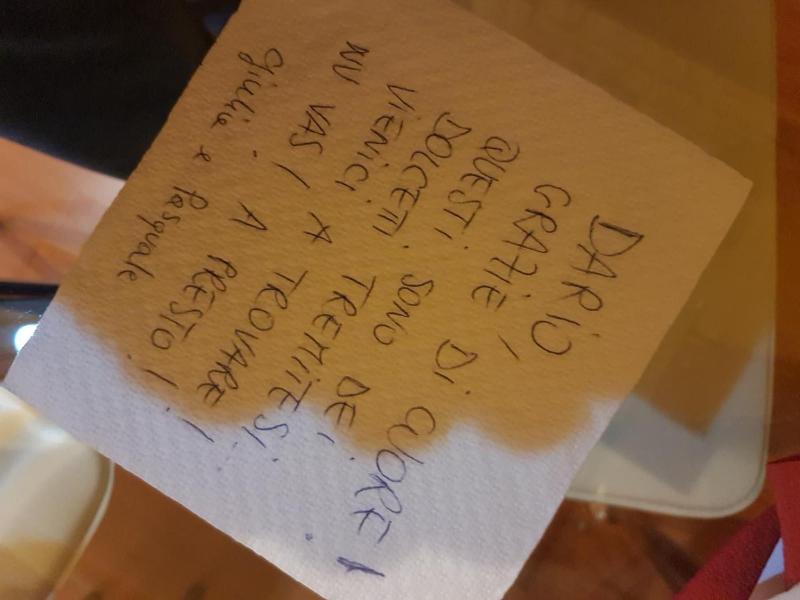 DARIO,
GRAZIE DI CUORE!
QUESTI SONO DEI
DOLCETTI TREMITESI.
VIENICI A TROVARE!
NU VASI A PRESTO!
Giulia e Pasquale